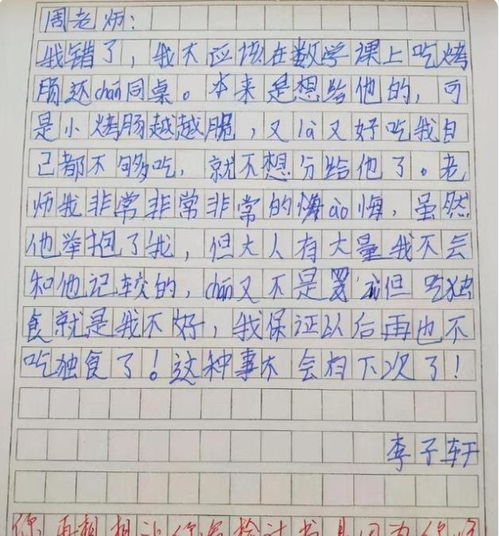 周老师:
我错了，我不应该在数学课上吃烤
肠还chán同桌。本来是想给他的，可
是小烤肠越越脆，又là又好吃我自
己都不够吃，就不想分给他了。老
师我非常非常非常的懊ào悔，虽然
他举抱了我，但大人有大量我不会
和他记较的，chán又不是罢 但吃独
食就是我不好，我保证以后再也不
吃独食了！这种事不会有下次了！
李子轩
你再想想